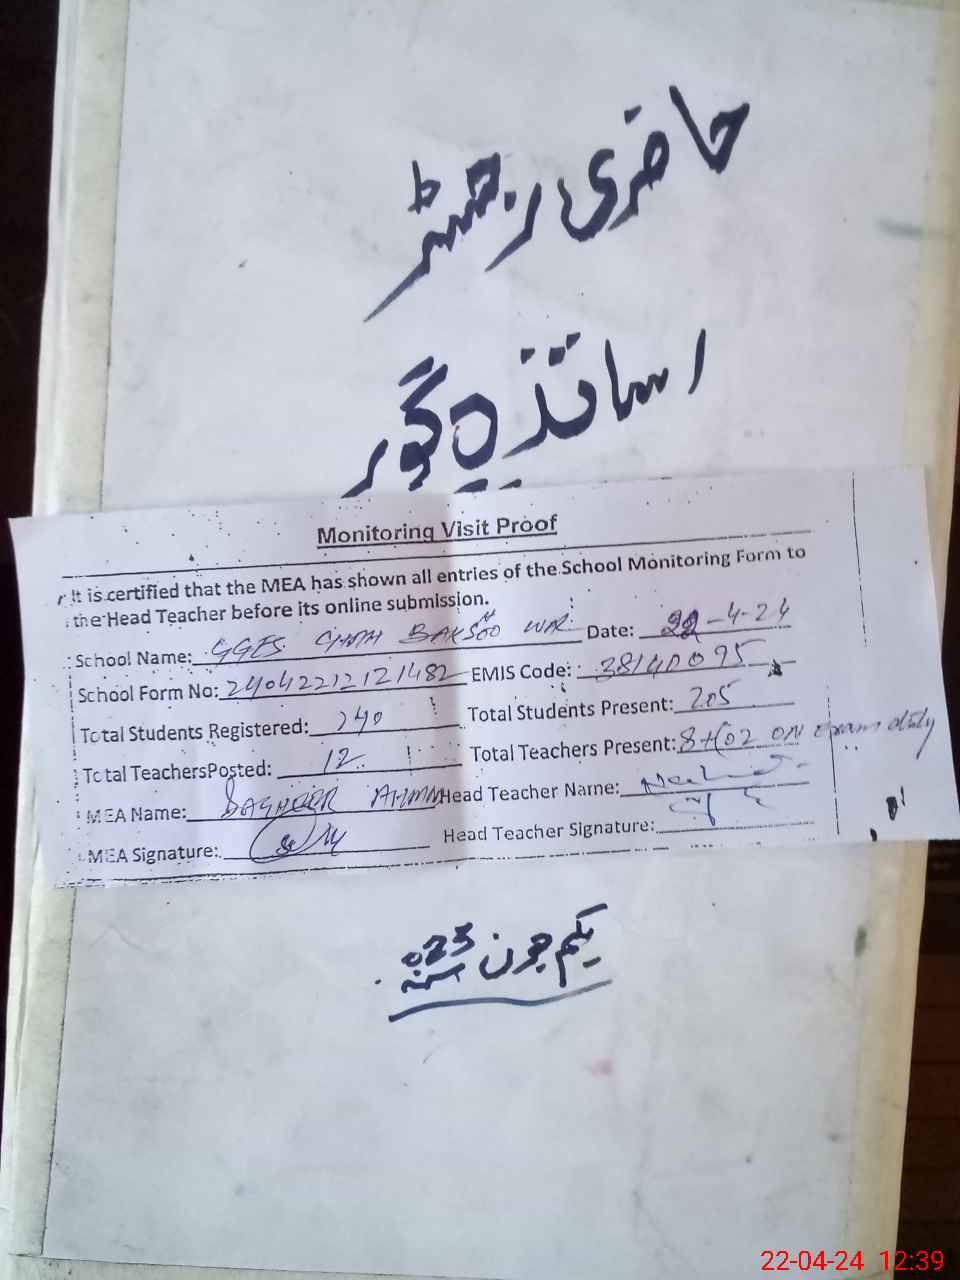 حاضری رجسٹر
اساتذہ
Monitoring Visit Proof
It is certified that the MEA has shown all entries of the School Monitoring Form to
the Head Teacher before its online submission.
School Name: GGES Date: 22-4-24
School Form No: 2404221212 1482 EMIS Code: 38140095
Total Students Registered: 240 Total Students Present: 205
Total TeachersPosted: 12 Total Teachers Present: 8+(02 ON Exam duty
MEA Name: BASHEER AHMAD Head Teacher Name:
MEA Signature: Head Teacher Signature:
یکم جون 023
22-04-24 12:39